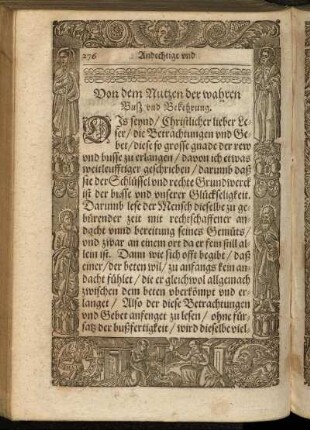 276 Andechtige vnd
Von dem Nutzen der wahren
Buß vnd Bekehrung.
DIs seynd / Christlicher lieber Le-
ser / die Betrachtungen vnd Ge-
bet / diese so grosse gnade der rew
vnd busse zu erlangen / davon ich etwas
weitleufftiger geschrieben / darumb daß
sie der Schlüssel vnd rechte Grundwerck
ist der busse vnd vnserer Glückseligkeit.
Darumb lese der Mensch dieselbe zu ge-
bürender zeit mit rechtschaffener an-
dacht vnnd bereitung seines Gemüts /
vnd zwar an einem ort da er fein still al-
lein ist. Dann wie sich offt begibt / daß
einer / der beten wil / zu anfangs kein an-
dacht fühlet / die er gleichwol allgemach
zwischen dem beten vberkömpt vnd er-
langet / Also der diese Betrachtungen
vnd Gebet anfenget zu lesen / ohne für-
satz der bußfertigkeit / wird dieselbe viel-